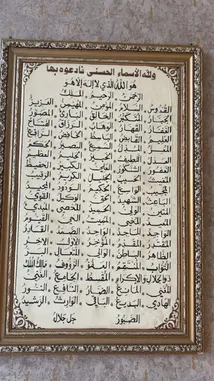 ولله الأسماء الحسنى فادعوه بها
هو الله الذي لا إله إلا هو
الرحمن الرحيم الملك
القدوس السلام المؤمن المهيمن العزيز
الجبار المتكبر الخالق البارئ المصور
الغفار القهار الوهاب الرزاق الفتاح
العليم القابض الباسط الخافض الرافع
المعز المذل السميع البصير الحكم
العدل اللطيف الخبير الحليم العظيم
الغفور الشكور العلي الكبير الحفيظ
المجيد
الباعث الشهيد الحق الوكيل القوي
المتين الولي الحميد المحصي المبدئ
المعيد المحيي المميت الحي القيوم
الواجد الماجد الواحد الصمد القادر
المقتدر المقدم المؤخر الأول الآخر
الظاهر الباطن الوالي المتعال البر
التواب المنتقم العفو الرؤوف مالك الملك
ذو الجلال والإكرام المقسط الجامع الغني
المغني المانع الضار النافع النور
الهادي البديع الباقي الوارث الرشيد
الصبور جل جلاله